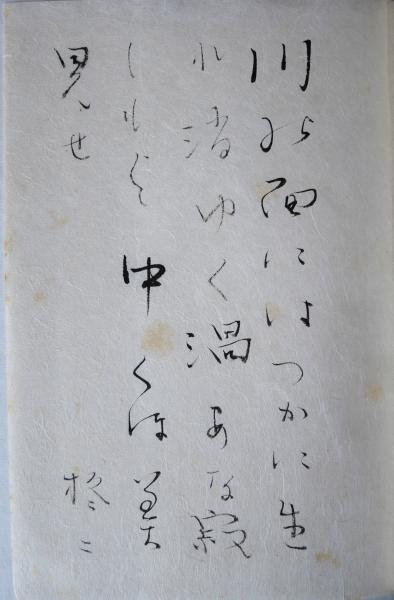 川の面にはつかに生
れ消ゆく渦あな寂
しもよ中くほみ
見せ
柊二